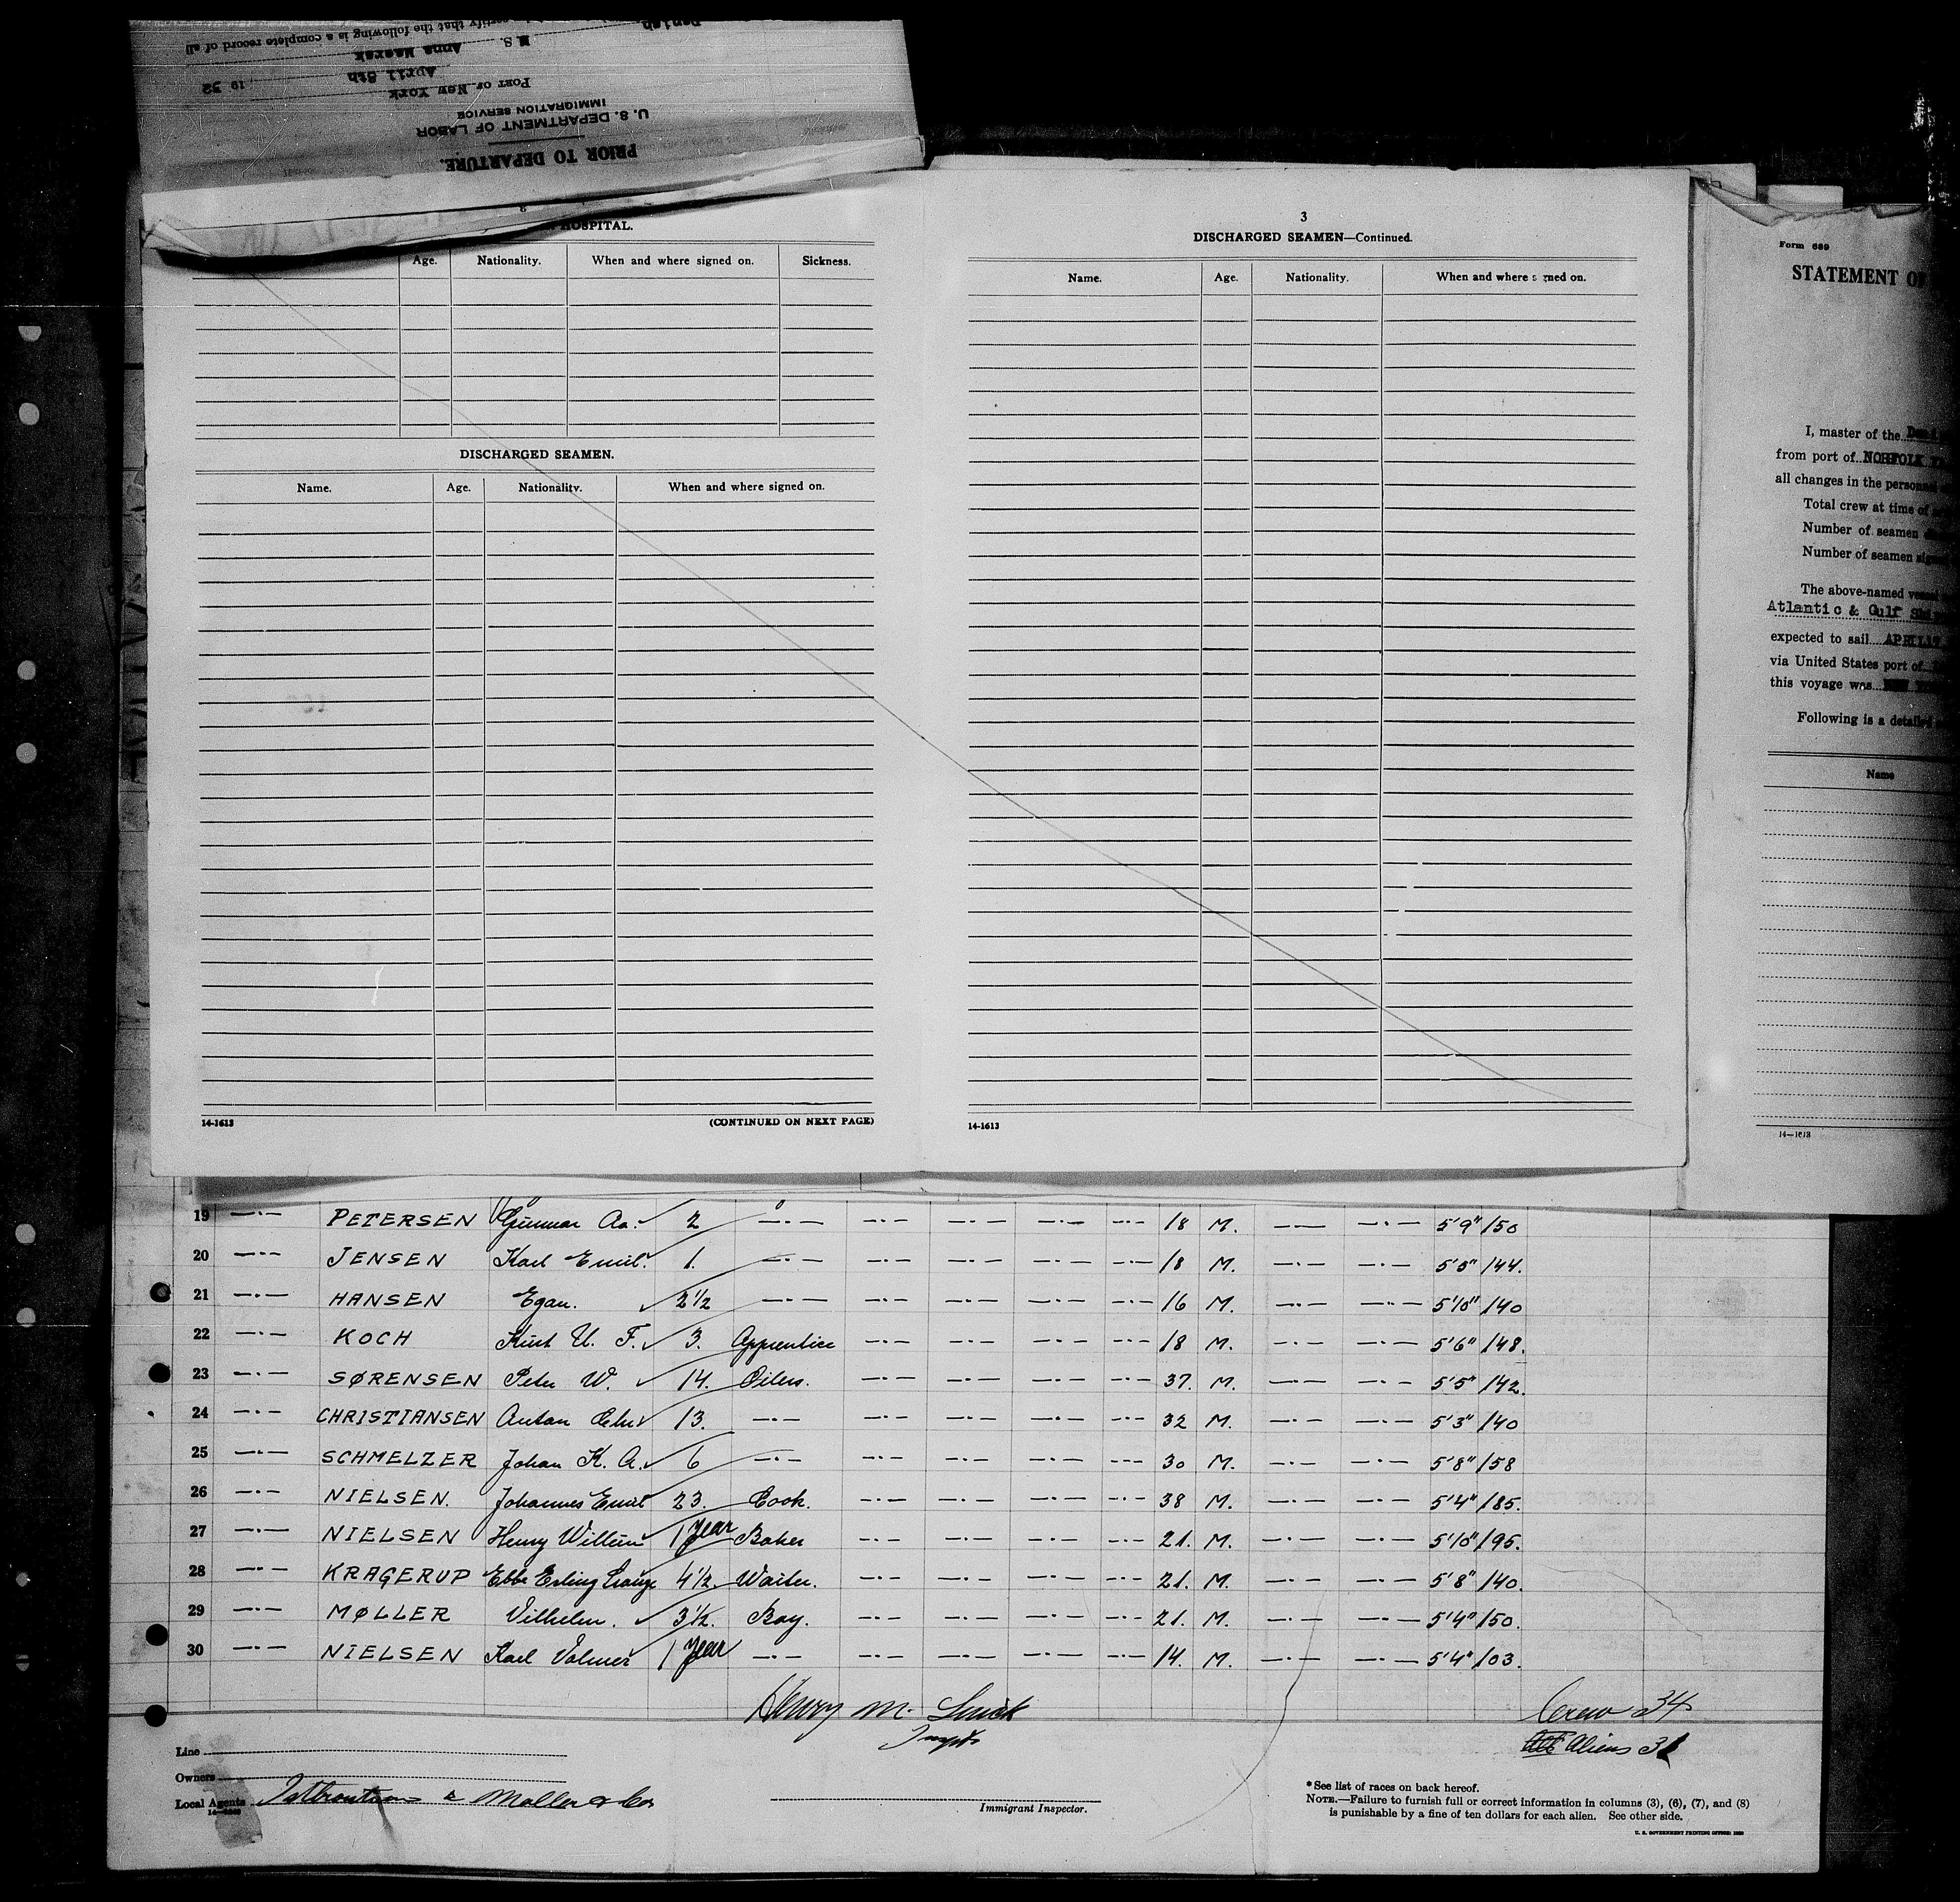 Danish
certify that the following is a complete record of all
M S. Anna Maersk
April 8th 19 32
PORT OF New York
IMMIGRATION SERVICE
U. S. DEPARTMENT OF LABOR
PRIOR TO DEPARTURE.
HOSPITAL.
Age. Nationality. When and where signed on. Sickness.
DISCHARGED SEAMEN.
Name. Age. Nationality. When and where signed on.
14-1613 (CONTINUED ON NEXT PAGE)
3
DISCHARGED SEAMEN—Continued.
Name. Age. Nationality. When and where signed on.
14-1613
Form 689
STATEMENT OF
I, master of the
from port of NORFOLK
all changes in the personnel
Total crew at time of
Number of seamen
Number of seamen
The above-named
Atlantic & Gulf
expected to sail APRIL17
via United States port of
this voyage was
Following is a detailed
Name
14—1613
19 —·— PETERSEN Gunnar Aa. 2 —·— —·— —·— —·— —·— 18 M. —·— —·— 5'9" 150
20 —·— JENSEN Karl Emil. 1. —·— —·— —·— —·— —·— 18 M. —·— —·— 5'5" 144.
21 —·— HANSEN Egan. 2½ —·— —·— —·— —·— —·— 16 M. —·— —·— 5'10" 140
22 —·— KOCH Kurt U. F. 3. Apprentice —·— —·— —·— —·— 18 M. —·— —·— 5'6" 148.
23 —·— SØRENSEN Peter W. 14. Oilers. —·— —·— —·— —·— 37. M. —·— —·— 5'5" 142.
24 —·— CHRISTIANSEN Anton Chr 13. —·— —·— —·— —·— —·— 32 M. —·— —·— 5'3" 140
25 —·— SCHMELZER Johan K. A. 6 —·— —·— —·— —·— —·— 30 M. —·— —·— 5'8" 158
26 —·— NIELSEN. Johannes Emil 23. Cook. —·— —·— —·— —·— 38 M. —·— —·— 5'4" 185.
27 —·— NIELSEN Henry Willum 1 year Baker —·— —·— —·— —·— 21. M. —·— —·— 5'10" 195.
28 —·— KRAGERUP Ebbe Erling Lange 4½. Waiter. —·— —·— —·— —·— 21. M. —·— —·— 5'8" 140.
29 —·— MØLLER Vilhelm. 3½. Boy. —·— —·— —·— —·— 21. M. —·— —·— 5'4" 150.
30 NIELSEN Karl Volmer 1 year —·— —·— —·— —·— —·— 14. M. —·— —·— 5'4" 103.
Henry M.
Inspt.
Crew 34
Aliens 31
Line
Owners
Local Agents Moller & Co
Immigrant Inspector.
* See list of races on back hereof.
NOTE.—Failure to furnish full or correct information in columns (3), (6), (7), and (8)
is punishable by a fine of ten dollars for each alien. See other side.
U. S. GOVERNMENT PRINTING OFFICE: